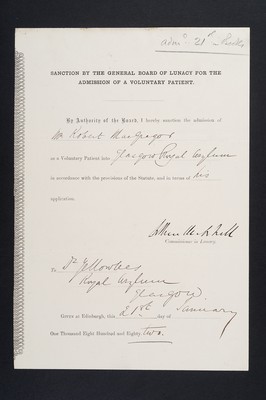 adm. 21st
SANCTION BY THE GENERAL BOARD OF LUNACY FOR THE
ADMISSION OF A VOLUNTARY PATIENT.
By Authority of the Board, I hereby sanction the admission of
Mr Robert MacGregor
as a Voluntary Patient into Glasgow Royal Asylum
in accordance with the provisions of the Statute, and in terms of his
application.
Commissioner in Lunacy.
To Dr Yellowlees
Royal Asylum
Glasgow.
Given at Edinburgh, this 21st day of January
One Thousand Eight Hundred and Eighty two.